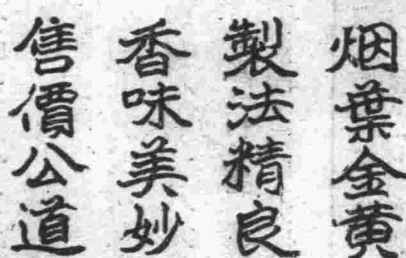 烟葉金黄
製法精良
香味美妙
售價公道